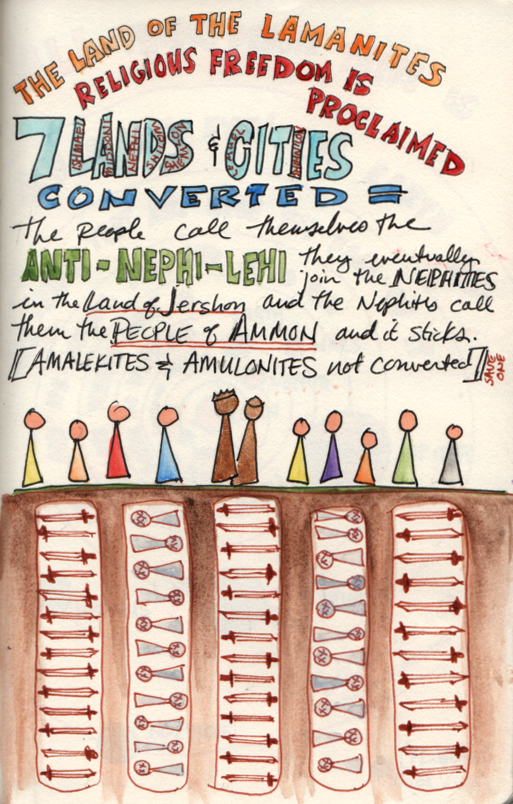 THE LAND OF THE LAMANITES
RELIGIOUS FREEDOM IS
PROCLAIMED
7 LANDS & CITIES
ISHMAEL
MIDDONI
NEPHI
CONVERTED =
the people call themselves the
ANTI-NEPHI-LEHI they eventually
join the NEPHITES
in the Land of Jershon and the Nephites call
them the PEOPLE of AMMON and it sticks.
[AMALEKITES & AMULONITES not converted]
SAVE
ONE